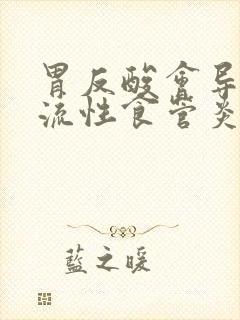 胃反酸會导
流性食管炎
藍之暖